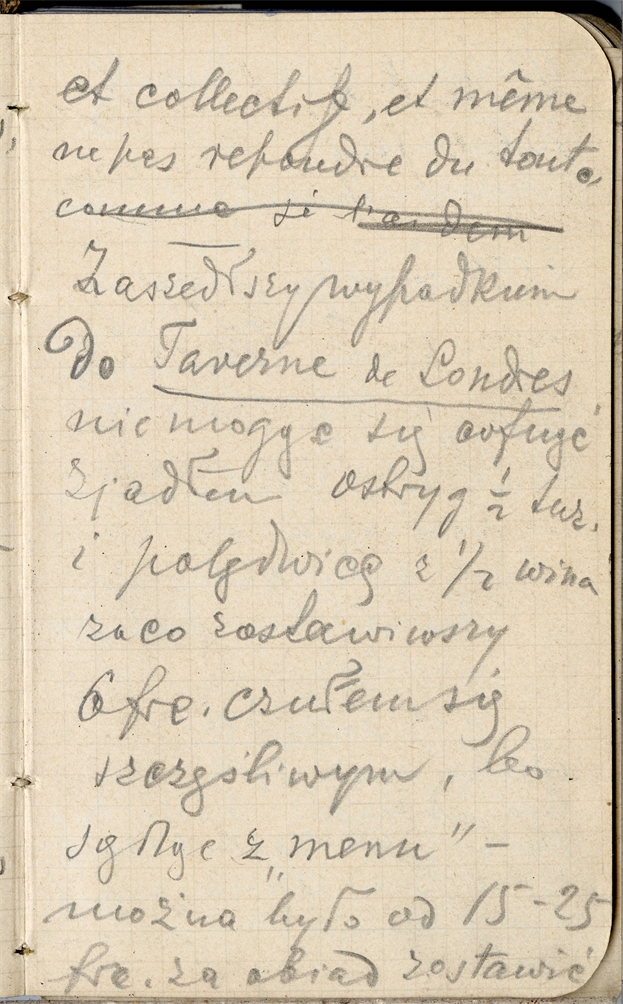 et collectif, et même
ne pas repondre du tout.
comme si
Zaszedłszy wypadkiem
do Taverne de Londres
nie mogąc się cofnąć
zjadłem ostryg 1/2 tuz.
i polędwicę z 1/2 wina
za co zostawiwszy
6 frc. czułem się
szczęśliwym, bo
sądząc z „menu” –
można było od 15-25
frc. za obiad zostawić